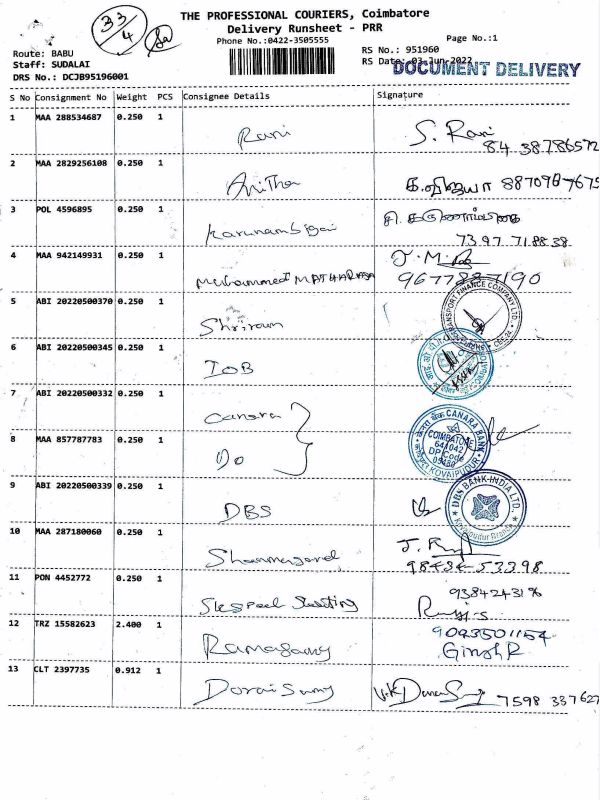 33/4
THE PROFESSIONAL COURIERS, Coimbatore
Delivery Runsheet - PRR
Phone No.:0422-3505555
Page No.:1
Route: BABU
RS No.: 951960
Staff: SUDALAI
RS Date: 03-Jun-2022
DOCUMENT DELIVERY
DRS No.: DCJB95196001
S No Consignment No Weight PCS Consignee Details Signature
1 MAA 288534687 0.250 1 Rani S. Rani
84 38786572
2 MAA 2829256108 0.250 1 Anitha
3 POL 4596895 0.250 1 Karunambigai
7397 718838
4 MAA 942149931 0.250 1 Mohammed J. M.
9677887190
5 ABI 20220500370 0.250 1 Shriram
TRANSPORT FINANCE COMPANY LTD.
6 ABI 20220500345 0.250 1 IOB
7 ABI 20220500332 0.250 1 Canara
CANARA BANK
COIMBATORE
641042
DP Code
KOVAIPUDUR
8 MAA 857787783 0.250 1 Do
9 ABI 20220500339 0.250 1 DBS
DBS BANK INDIA LTD.
Kovaipudur Branch
10 MAA 287180060 0.250 1 J.
98434 53398
11 PON 4452772 0.250 1
12 TRZ 15582623 2.400 1 Ramasamy
9093501154
Girish R
13 CLT 2397735 0.912 1 Doraisamy
7598 337627